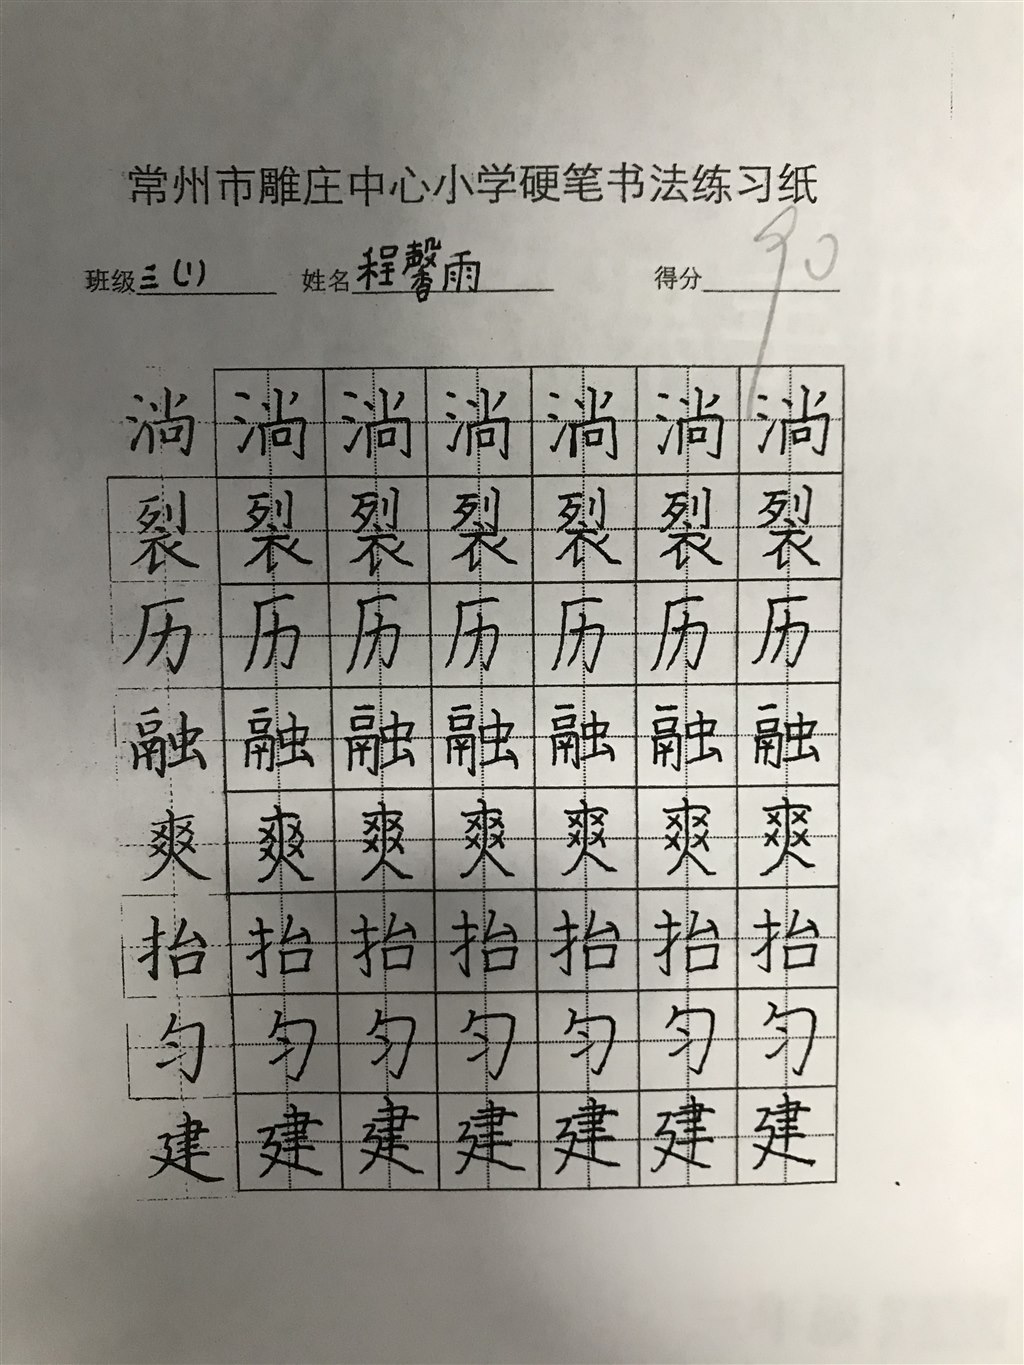 常州市雕庄中心小学硬笔书法练习纸
班级三(1) 姓名程馨雨 得分90
淌淌淌淌淌淌淌
裂裂裂裂裂裂裂
历历历历历历历
融融融融融融融
爽爽爽爽爽爽爽
抬抬抬抬抬抬抬
匀匀匀匀匀匀匀
建建建建建建建